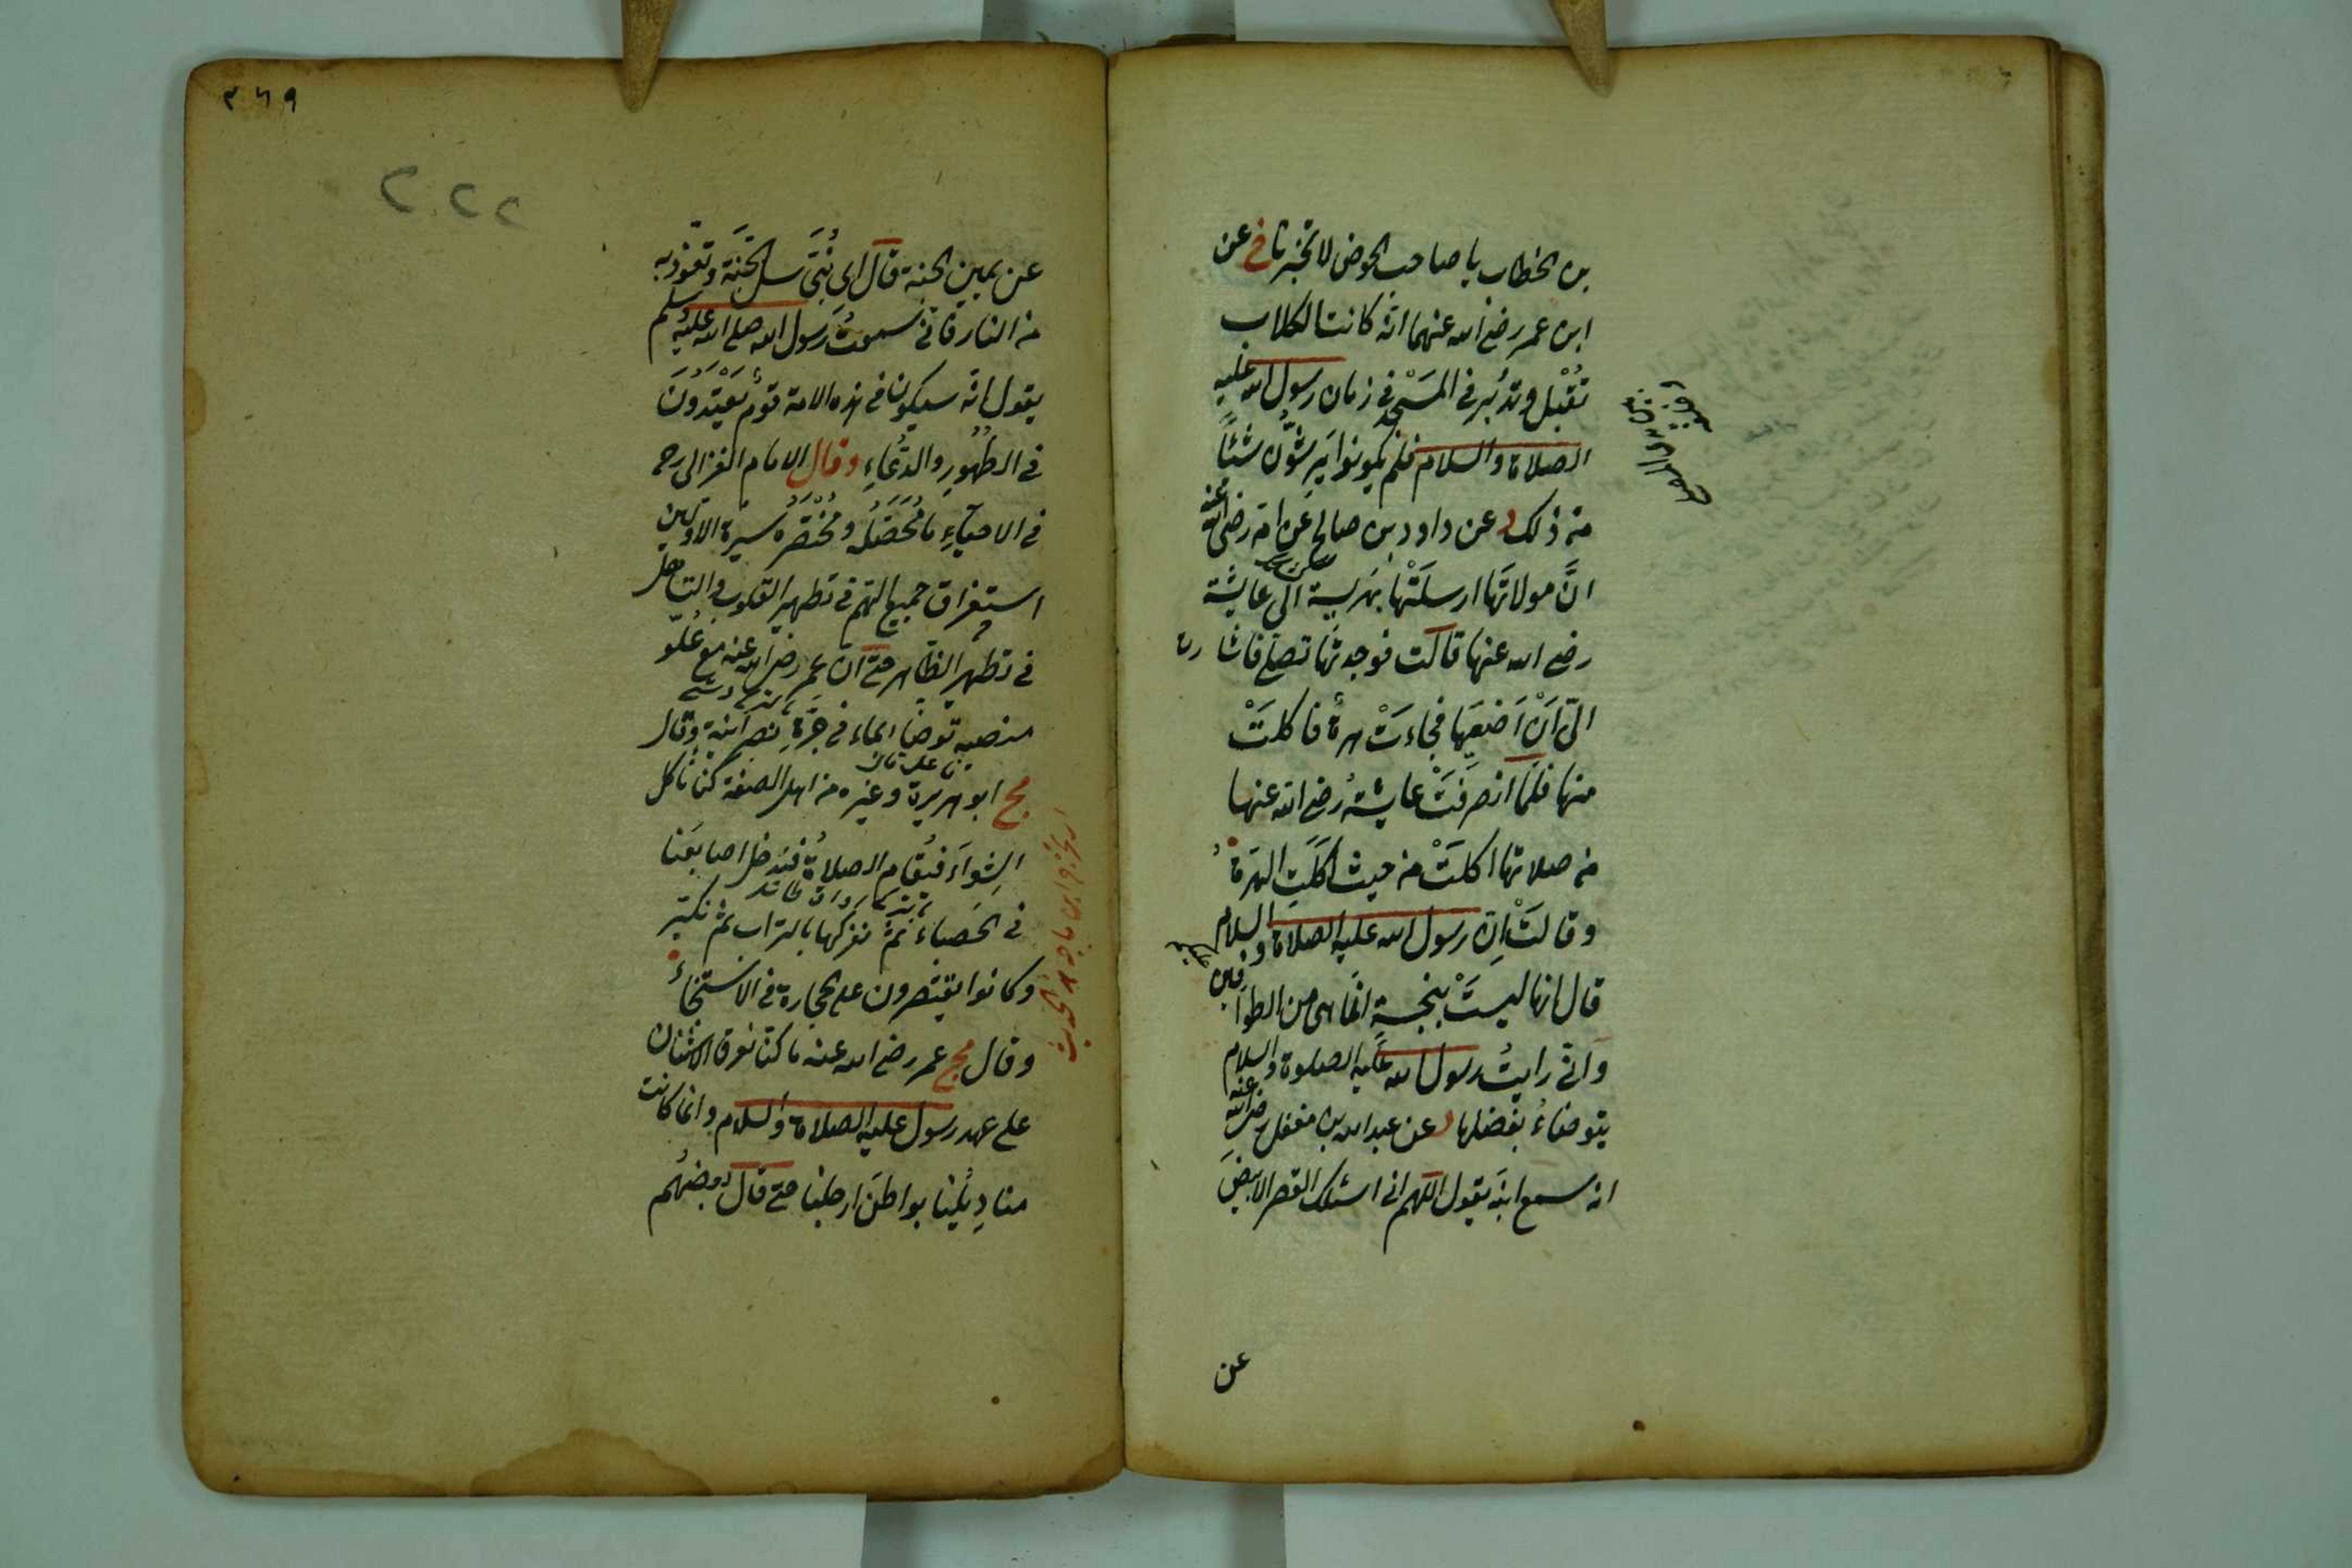 بن الخطاب يا صاحب الحوض لا تخبرنا خ عن
ابن عمر رضي الله عنهما انه كانت الكلاب
تُقْبِل وتدبُر في المَسْجد في زمان رسول الله عليه
الصلاة والسلام فلم يكونوا يَرشّون شيئاً
من ذلك د عن داود بن صالح عن امه رضي الله عنه
انَّ مولاتَها ارسلَتْها بهَريسة الى عايشة
رضي الله عنها قالت فوجدتُها تصلي فاشارت
الىّ اَنْ اَضَعِيها فجاءَتْ هرة فاكلَتْ
منها فلمّا انصرفَتْ عايشة رضي الله عنها
من صلاتها اكلَتْ من حيث اكلَتِ الهرة
وقالَتْ اِن رسول الله عليه الصلاة والسلام
قال انها ليسَتْ بنجسةٍ انما هى من الطوافين عليكم
وانى رايتُ رسول الله عليه الصلوة والسلام
يتوضاءُ بفضلها د عن عبد الله بن مغفل رضي الله عنه
انه سمع ابنَه يقول اللهم انى اسئلك القصر الابيضَ
عن
٣٦٩
٢٢٢
عن يمين الجنة قال اى بُنَيَّ سل الجنَّة وتعوذ به
من النار فانى سمعتُ رسول الله صلى الله عليه وسلم
يقول انه سيكون فى هذه الامة قومٌ يَعْتَدُونَ
في الطهُورِ والدُّعاءِ وقال الامام الغزالى رح
في الاحيآءِ ما مُحَصَّلُه ومُخْتَصَرُه سيرة الاولين
استغراق جميع الهم في تطهير القلوب والتساهل
فى تطهير الظاهر حتى ان عمر رضي الله عنه مع عُلُوّ
منصبه توضأ بماء فى جَرَّةِ نصرانية وقال
مج ابو هريرة وغيره من اهل الصفة كنا نأكل
الشِواءَ فيُقام الصلاةُ فندخل اصابعَنا
في الحَصباء ثمّ نفركها بالتراب ثم نكبّر
وكانوا يقتصرون على الحجارة فى الاستنجاء
وقال مج عمر رضي الله عنه ما كنا نعرف الاشنان
على عهد رسول عليه الصلاة والسلام وانما كانت
مناديلُنا بواطنَ ارجلنا حتى قال بعضهُم